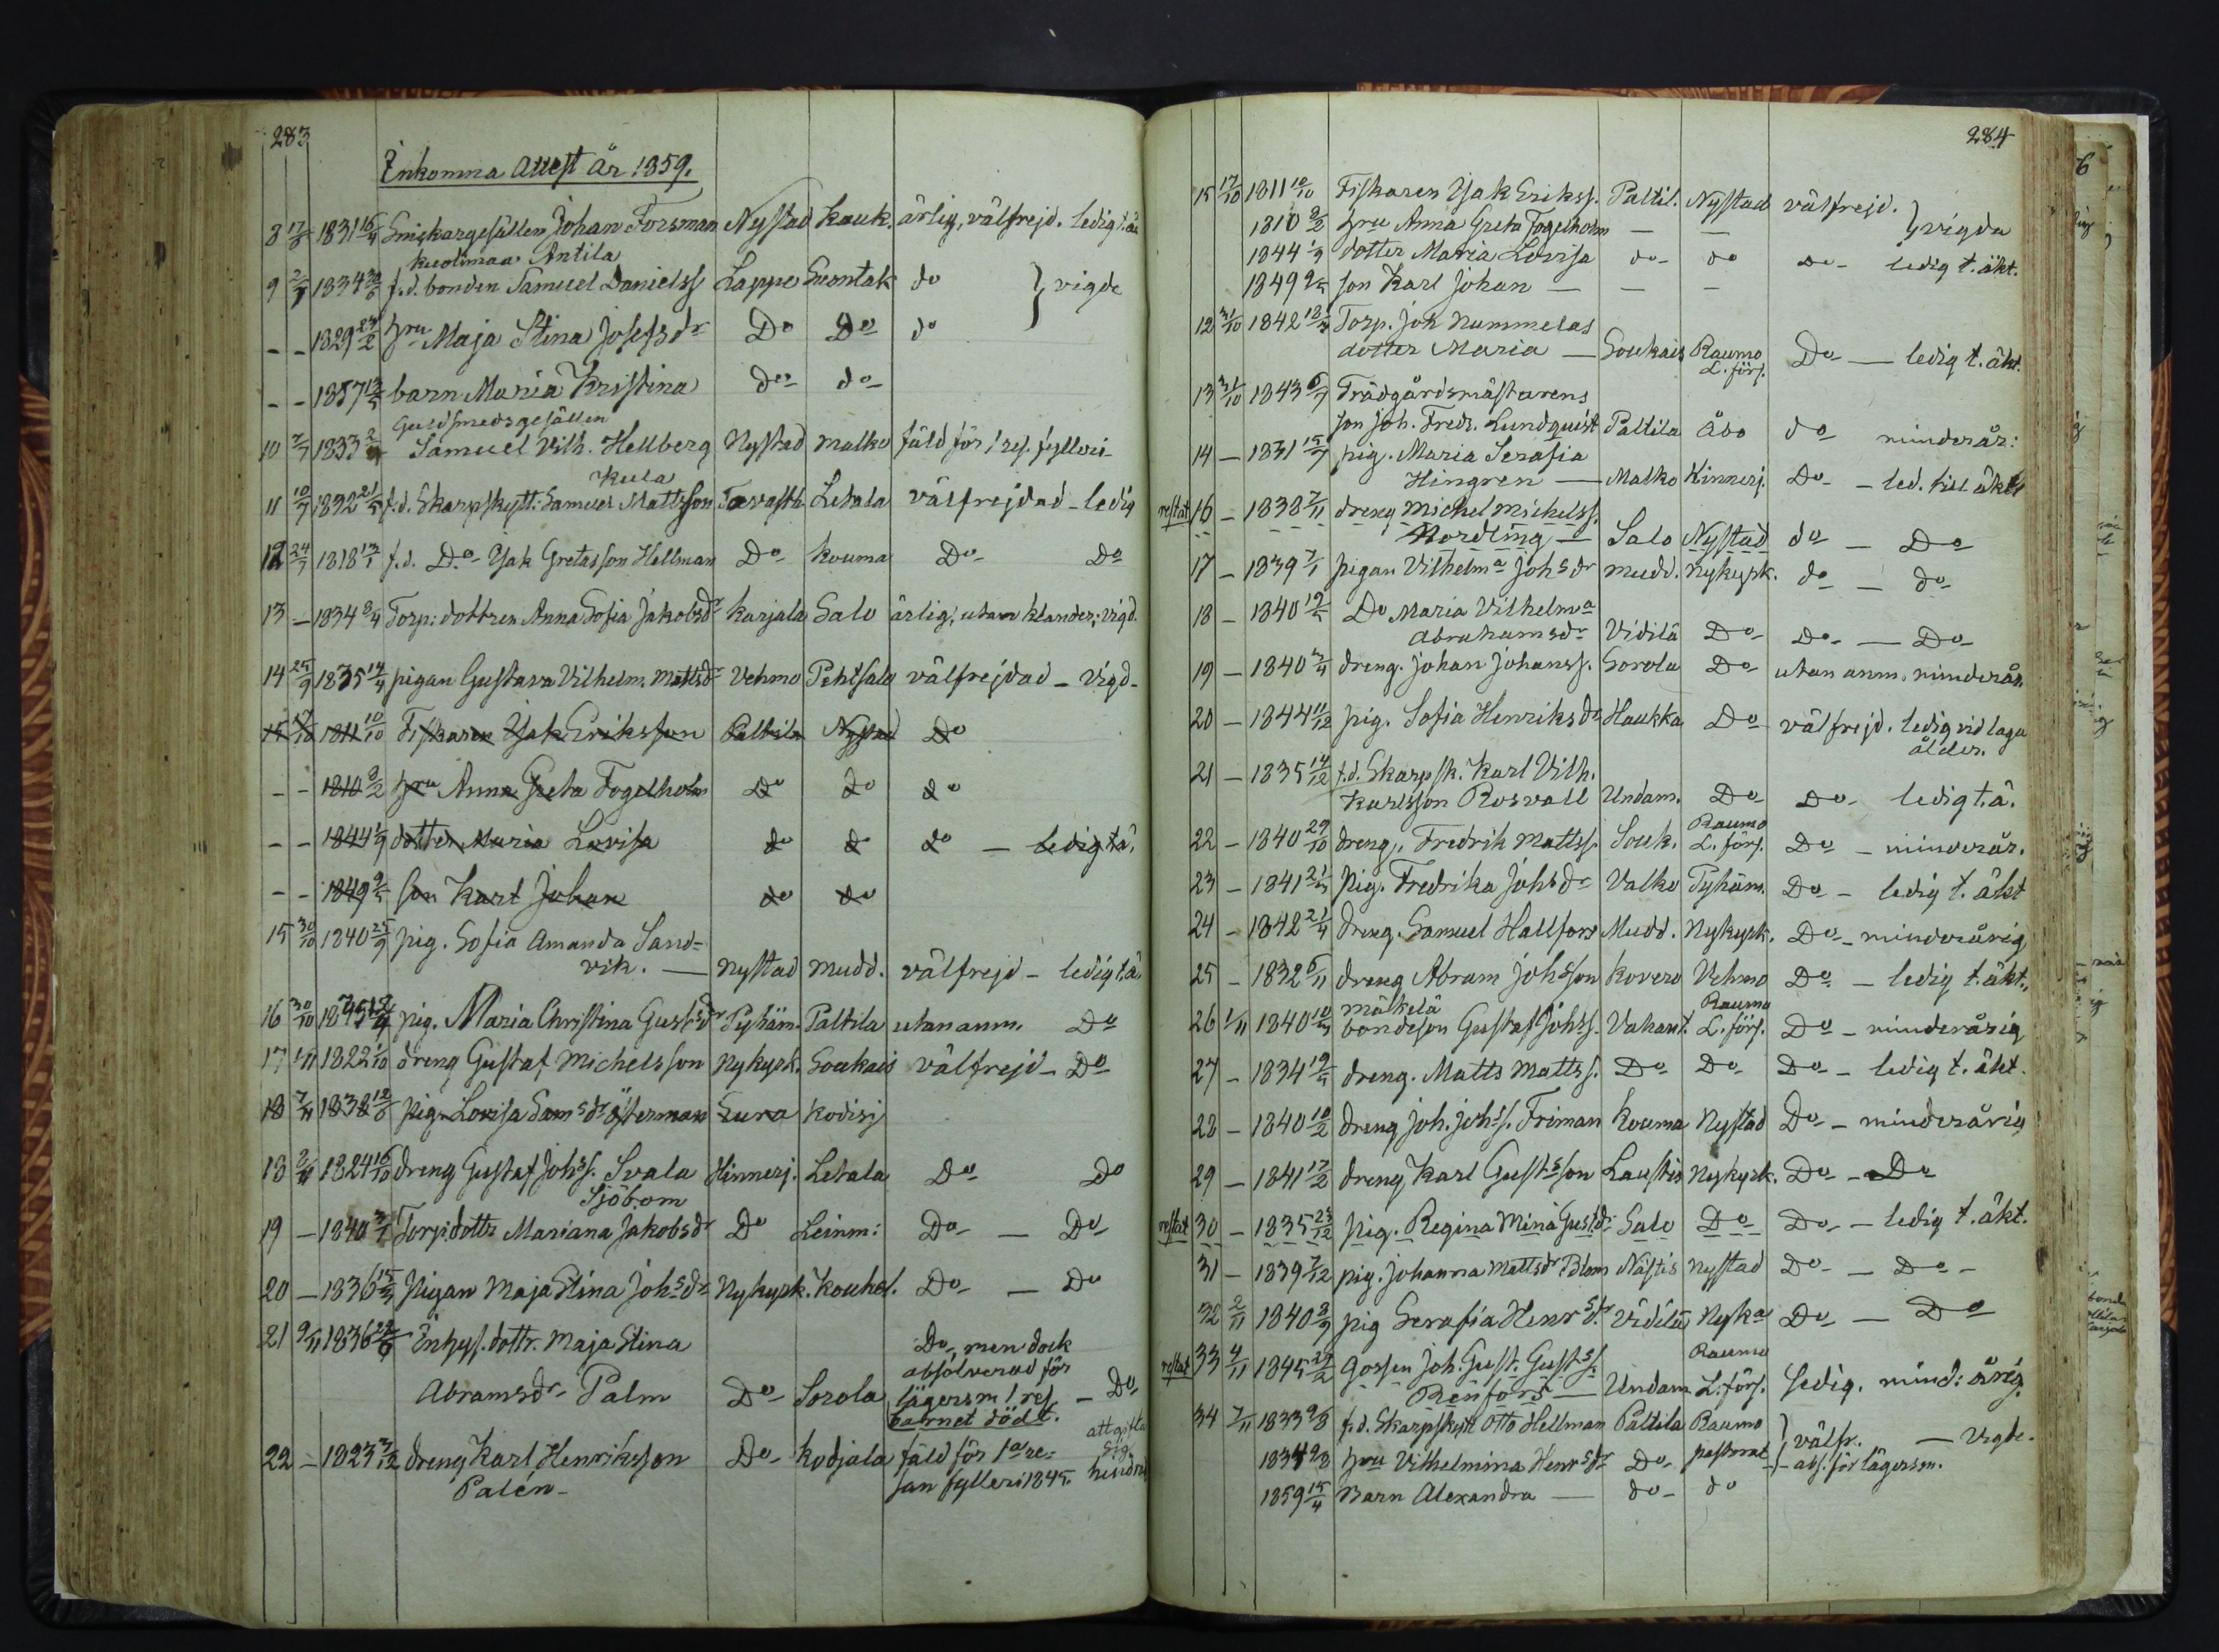 283
Inkomna Attest År 1859.
8 17/6 1831 16/4 Snickargesällen Johan Forsman Nystad Kauk. ärlig, välfrejd. ledig t. äk
Kuolimaa Antila
9 2/7 1834 30/6 f.d. bonden Samuel Danielss Lappo Suontak do } vigde
– – 1829 24/2 hru Maja Stina Josefsdr Do Do do
– – 1857 12/5 barn Maria Kristina do do
Guldsmedsgesällen
10 7/7 1833 Samuel Vilh. Hellberg Nystad Malko fäld för 1 res. fylleri
Kula
11 10/7 1832 21/5 f.d. Skarpskytt. Samuel Mattsson Tavasth. Letala välfrejdad – ledig
12 24/7 1818 13/1 f.d. Do Isak Gretasson Hellman Do Kouma Do Do
13 – 1834 8/4 Torp: dottren Anna Sofia Jakobsdr Karjala Salo ärlig, utan klander; vigd.
14 25/9 1835 14/4 pigan Gustava Vilhelm. Mattsdr Vehmo Pehtsalo välfrejdad – Vigd –
15 17/10 1811 10/10 Fiskaren Isak Eriksson Paltila Nystad Do
– – 1810 8/2 hru Anna Greta Fogelholm Do do do
– – 1844 1/9 dotter Maria Lovisa do do do – ledig t. ä.
– – 1849 9/5 son Karl Johan do do
15 30/10 1840 25/9 pig. Sofia Amanda Sand=
vik. — Nystad Mudd. välfrejd – ledig t. ä.
16 30/10 1845 pig. Maria Christina Gustsdr Pyhäm. Paltila utan anm. Do
17 1/11 1822 1/10 dreng Gustaf Michelsson Nykyrk. Soukais välfrejd – Do
18 7/11 1838 12/6 pig. Lovisa Samsdr Österman Eura Kodisj
18 2/11 1824 16/10 dreng Gustaf Johss. Svala Hinnerj. Letala Do Do
Sjöbom
19 – 1840 Torp: dottr Mariana Jakobsdr Do Leinm: Do – Do
20 – 1836 15/5 Pigan Maja Stina Johsdr Nykyrk. Kouhel. Do – Do
21 9/11 1836 Inhys. dottr. Maja Stina Do, men dock
absolverad för
Abramsdr Palm Do Sorola lägersm 1 res – Do
barnet dödt.
att gifta
22 – 1823 7/12 dreng Karl Henriksson Do Kodjala fäld för 1a re= sig
Palén – san fylleri 1845. hindra
284
15 17/10 1811 10/10 Fiskaren Isak Erikss. Paltil. Nystad välfrejd.
1810 8/2 hru Anna Greta Fogelholm — — } vigda
1844 1/9 dotter Maria Lovisa do do do ledig t. äkt.
1849 9/5 son Karl Johan — — —
12 31/10 1842 Torp. Joh Nummelas
dotter Maria — Soukais Raumo Do — ledig t. äkt.
L. förs.
13 31/10 1843 6/7 Trädgårdsmästarens
son Joh. Fredr. Lundquist Paltila Åbo do minderår:
14 – 1831 15/7 pig. Maria Serafia
Hingren — Malko Hinnerj. Do – led. till äkt
restat 16 – 1838 7/11 dreng Michel Michelss.
Nordling — Salo Nystad do – Do
17 – 1839 7/1 pigan Vilhelma Johsdr Mudd. Nykyrk. do – do
18 – 1840 19/5 Do Maria Vilhelma
Abrahamsdr Vidilä Do Do — Do
19 – 1840 3/4 dreng. Johan Johanss. Sorola Do utan anm. minderår.
20 – 1844 11/12 pig. Sofia Henriksdr Haukka Do välfrejd. ledig vid laga
ålder.
21 – 1835 14/12 f.d. Skarpsk. Karl Vilh.
Karlsson Rosvall Undam. Do Do ledig t. ä.
Raumo
22 – 1840 29/10 dreng. Fredrik Mattss. Souk. L. förs. Do – minderår.
23 – 1841 pig. Fredrika Johsdr Valko Pyhäm. Do – ledig t. äkt
24 – 1842 21/4 dreng. Samuel Hallfors Mudd. Nykyrk. Do – minderårig
25 – 1832 6/11 dreng Abram Johsson Kovero Vehmo Do – ledig t. äkt.,
Mälkelä Raumo
26 1/11 1840 bondeson Gustaf Johss. Vahant. L. förs. Do – minderårig
27 – 1834 19/5 dreng. Matts Mattss. Do Do Do – ledig t. äkt.
28 – 1840 10/2 dreng Joh. Johss. Friman Kouma Nystad Do – minderårig
29 – 1841 17/2 dreng Karl Gustsson Laustis Nykyrk. Do – Do
restat 30 – 1835 23/12 pig. Regina Mina Gustdr Salo Do Do – ledig t. äkt.
31 – 1839 7/12 pig. Johanna Mattsdr Blom Nästis Nystad Do – Do –
32 2/11 1840 8/9 pig Serafia Henrsdr Vidilä Nyka Do – Do
Raumo
restat 33 4/11 1845 gossen Joh. Gust. Gustss.
Renfors — Undam L. förs. Sedig. mind: årig.
34 7/11 1833 9/8 f.d. Skarpskytt Otto Hellman Paltila Raumo } välfr. — Vigde.
1834 9/8 hru Vilhelmina Henrsdr Do pastorat – abs. för lägersm.
1859 15/4 Barn Alexandra — do do